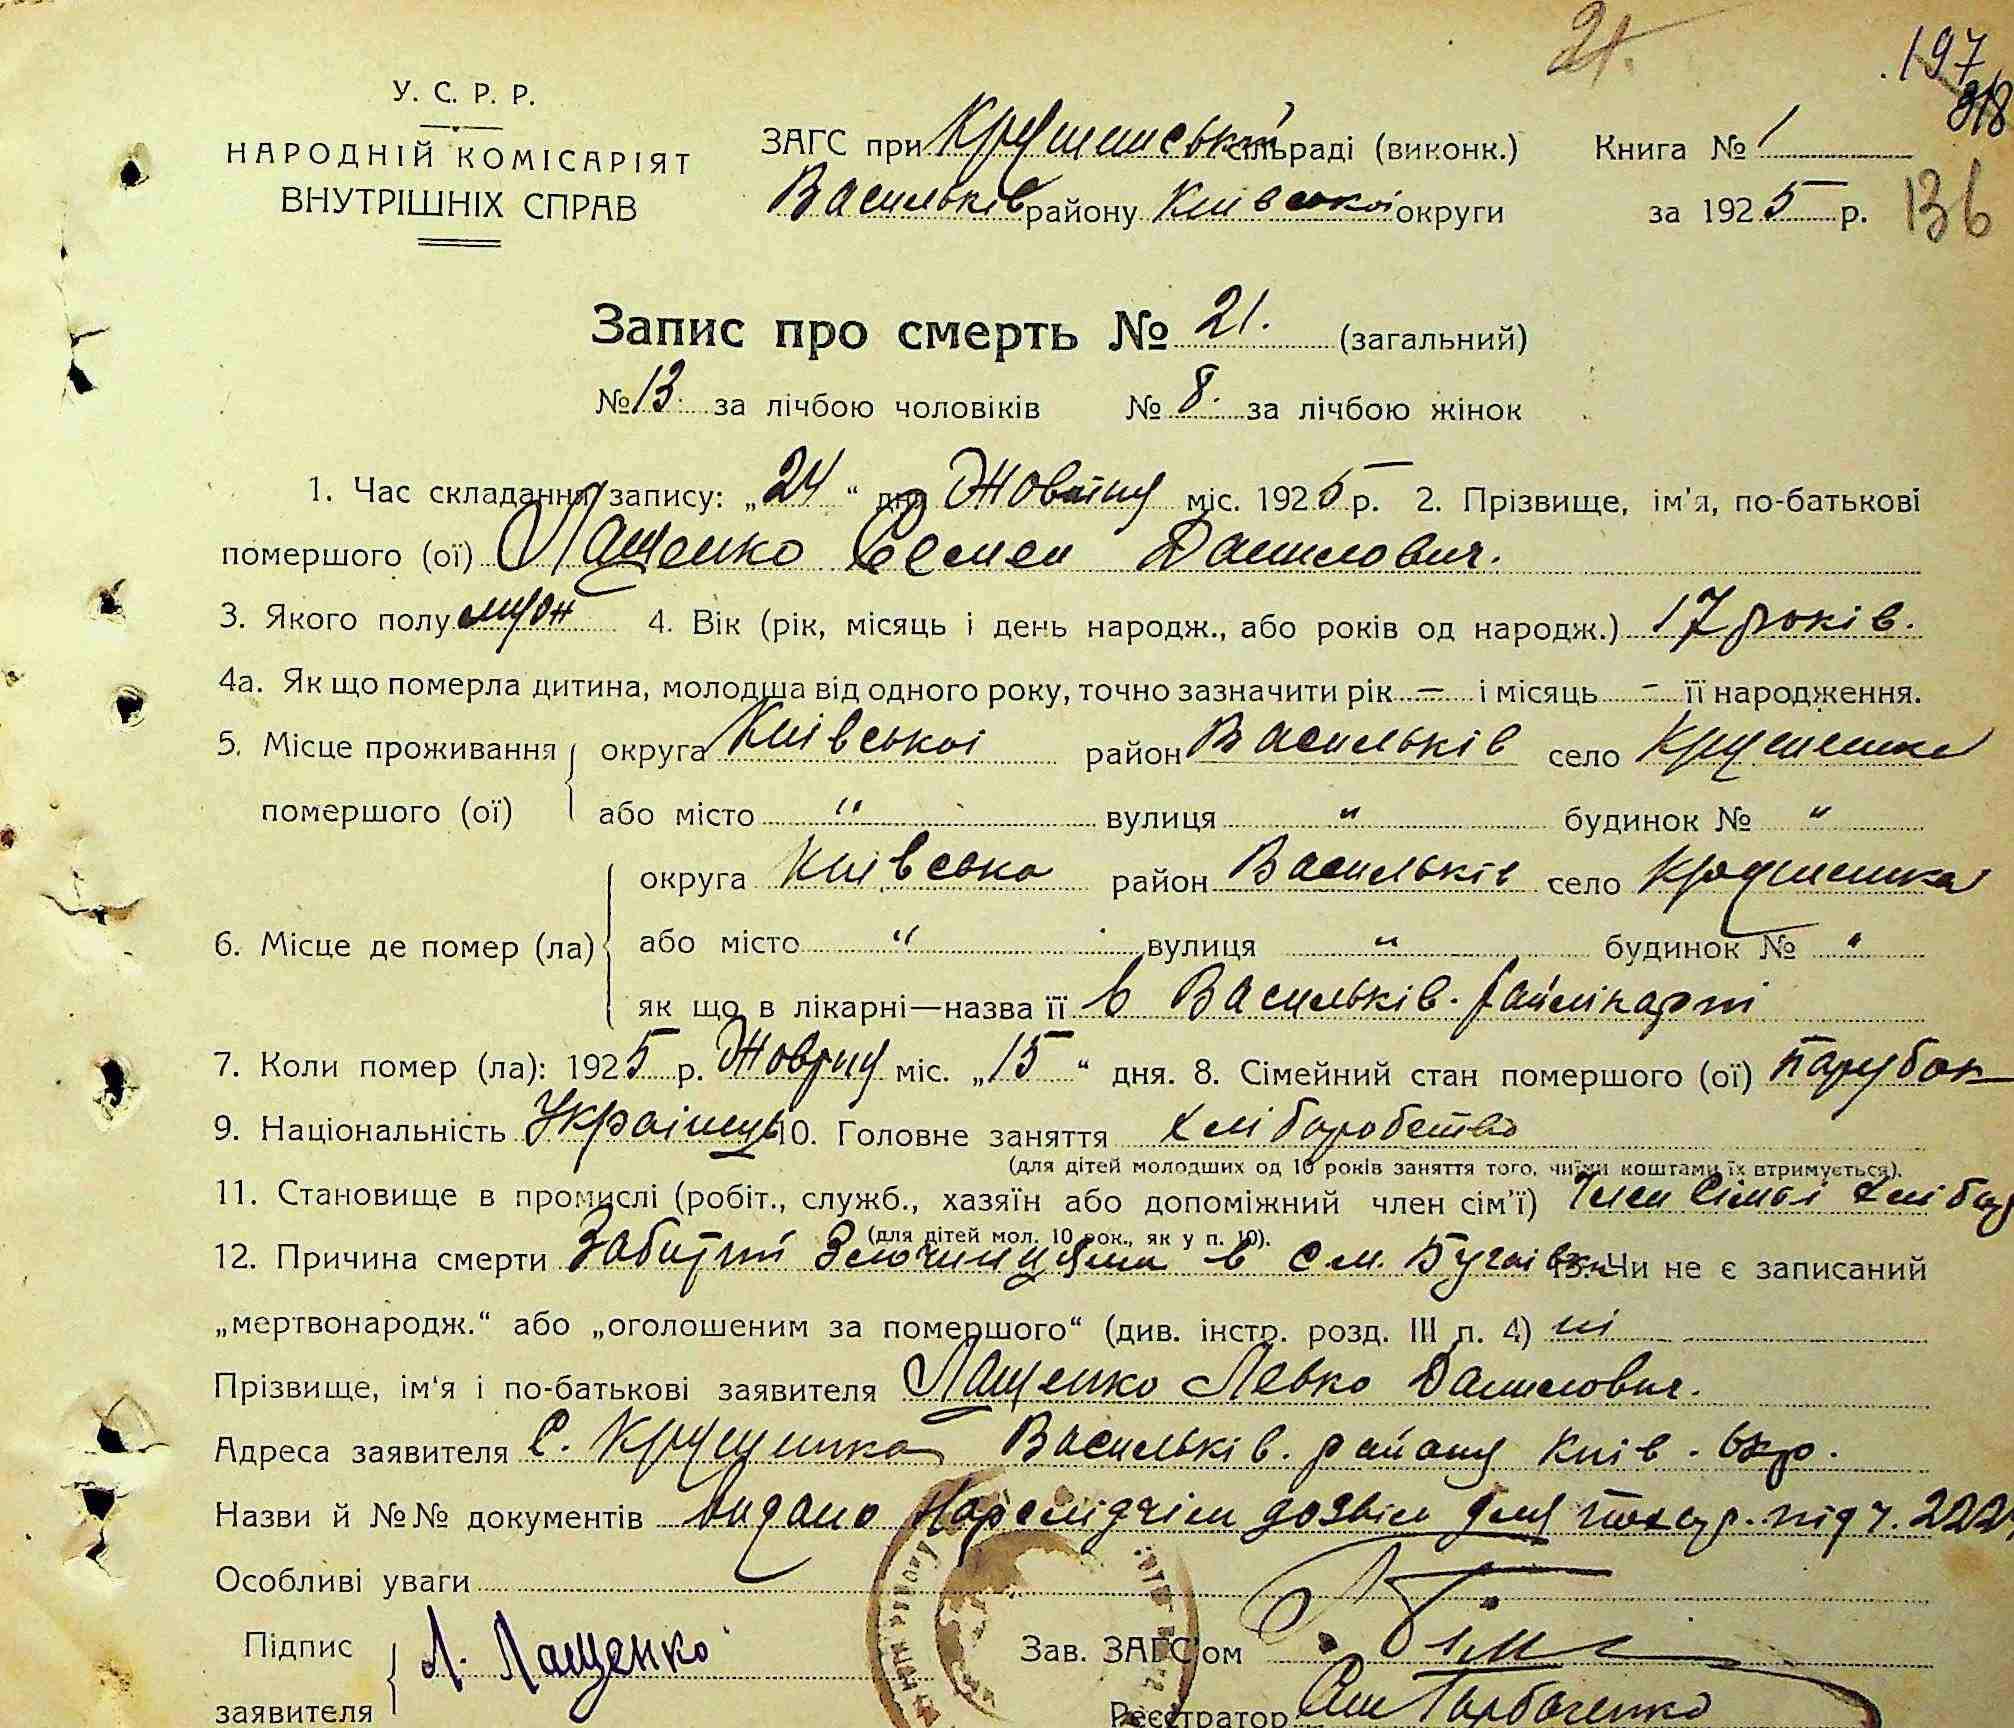 21.
197
318
136
У. С. Р. Р.
НАРОДНІЙ КОМІСАРІЯТ
ВНУТРІШНІХ СПРАВ
ЗАГС при Крушинській сільраді (виконк.) Книга № 1
Васильків району Київської округи за 1925 р.
Запис про смерть № 21. (загальний)
№ 13. за лічбою чоловіків № 8. за лічбою жінок
1. Час складання запису: „24“ дня Жовтня міс. 1925 р. 2. Прізвище, ім'я, по-батькові
помершого (ої) Лащенко Семен Данилович.
3. Якого полу муж 4. Вік (рік, місяць і день народж., або років од народж.) 17 років.
4а. Як що померла дитина, молодша від одного року, точно зазначити рік — і місяць - її народження.
5. Місце проживання округа Київської район Васильків село Крушинка
помершого (ої) або місто " вулиця " будинок № "
округа Київська район Васильків село Крушинка
6. Місце де помер (ла) або місто " вулиця " будинок № "
як що в лікарні—назва її в Васильків. райлікарні
7. Коли помер (ла): 1925 р. Жовтня міс. „15“ дня. 8. Сімейний стан помершого (ої) парубок
9. Національність Українець 10. Головне заняття хліборобство
(для дітей молодших од 10 років заняття того, чиїми коштами їх втримується).
11. Становище в промислі (робіт., служб., хазяїн або допоміжний член сім'ї) Член сімьі хлібор
(для дітей мол. 10 рок., як у п. 10).
12. Причина смерти Забитий Злочинцями в с. м. Бугаівки 13. Чи не є записаний
„мертвонародж.“ або „оголошеним за помершого“ (див. інстр. розд. III п. 4) ні
Прізвище, ім'я і по-батькові заявителя Лащенко Левко Данилович.
Адреса заявителя С. Крушинка Васильків. району Київ. Окр.
Назви й №№ документів видано Нарслідчім дозвіл для похор. під ч. 222
Особливі уваги
Підпис Л. Лащенко Зав. ЗАГС'ом
заявителя Реєстратор Горбаченко